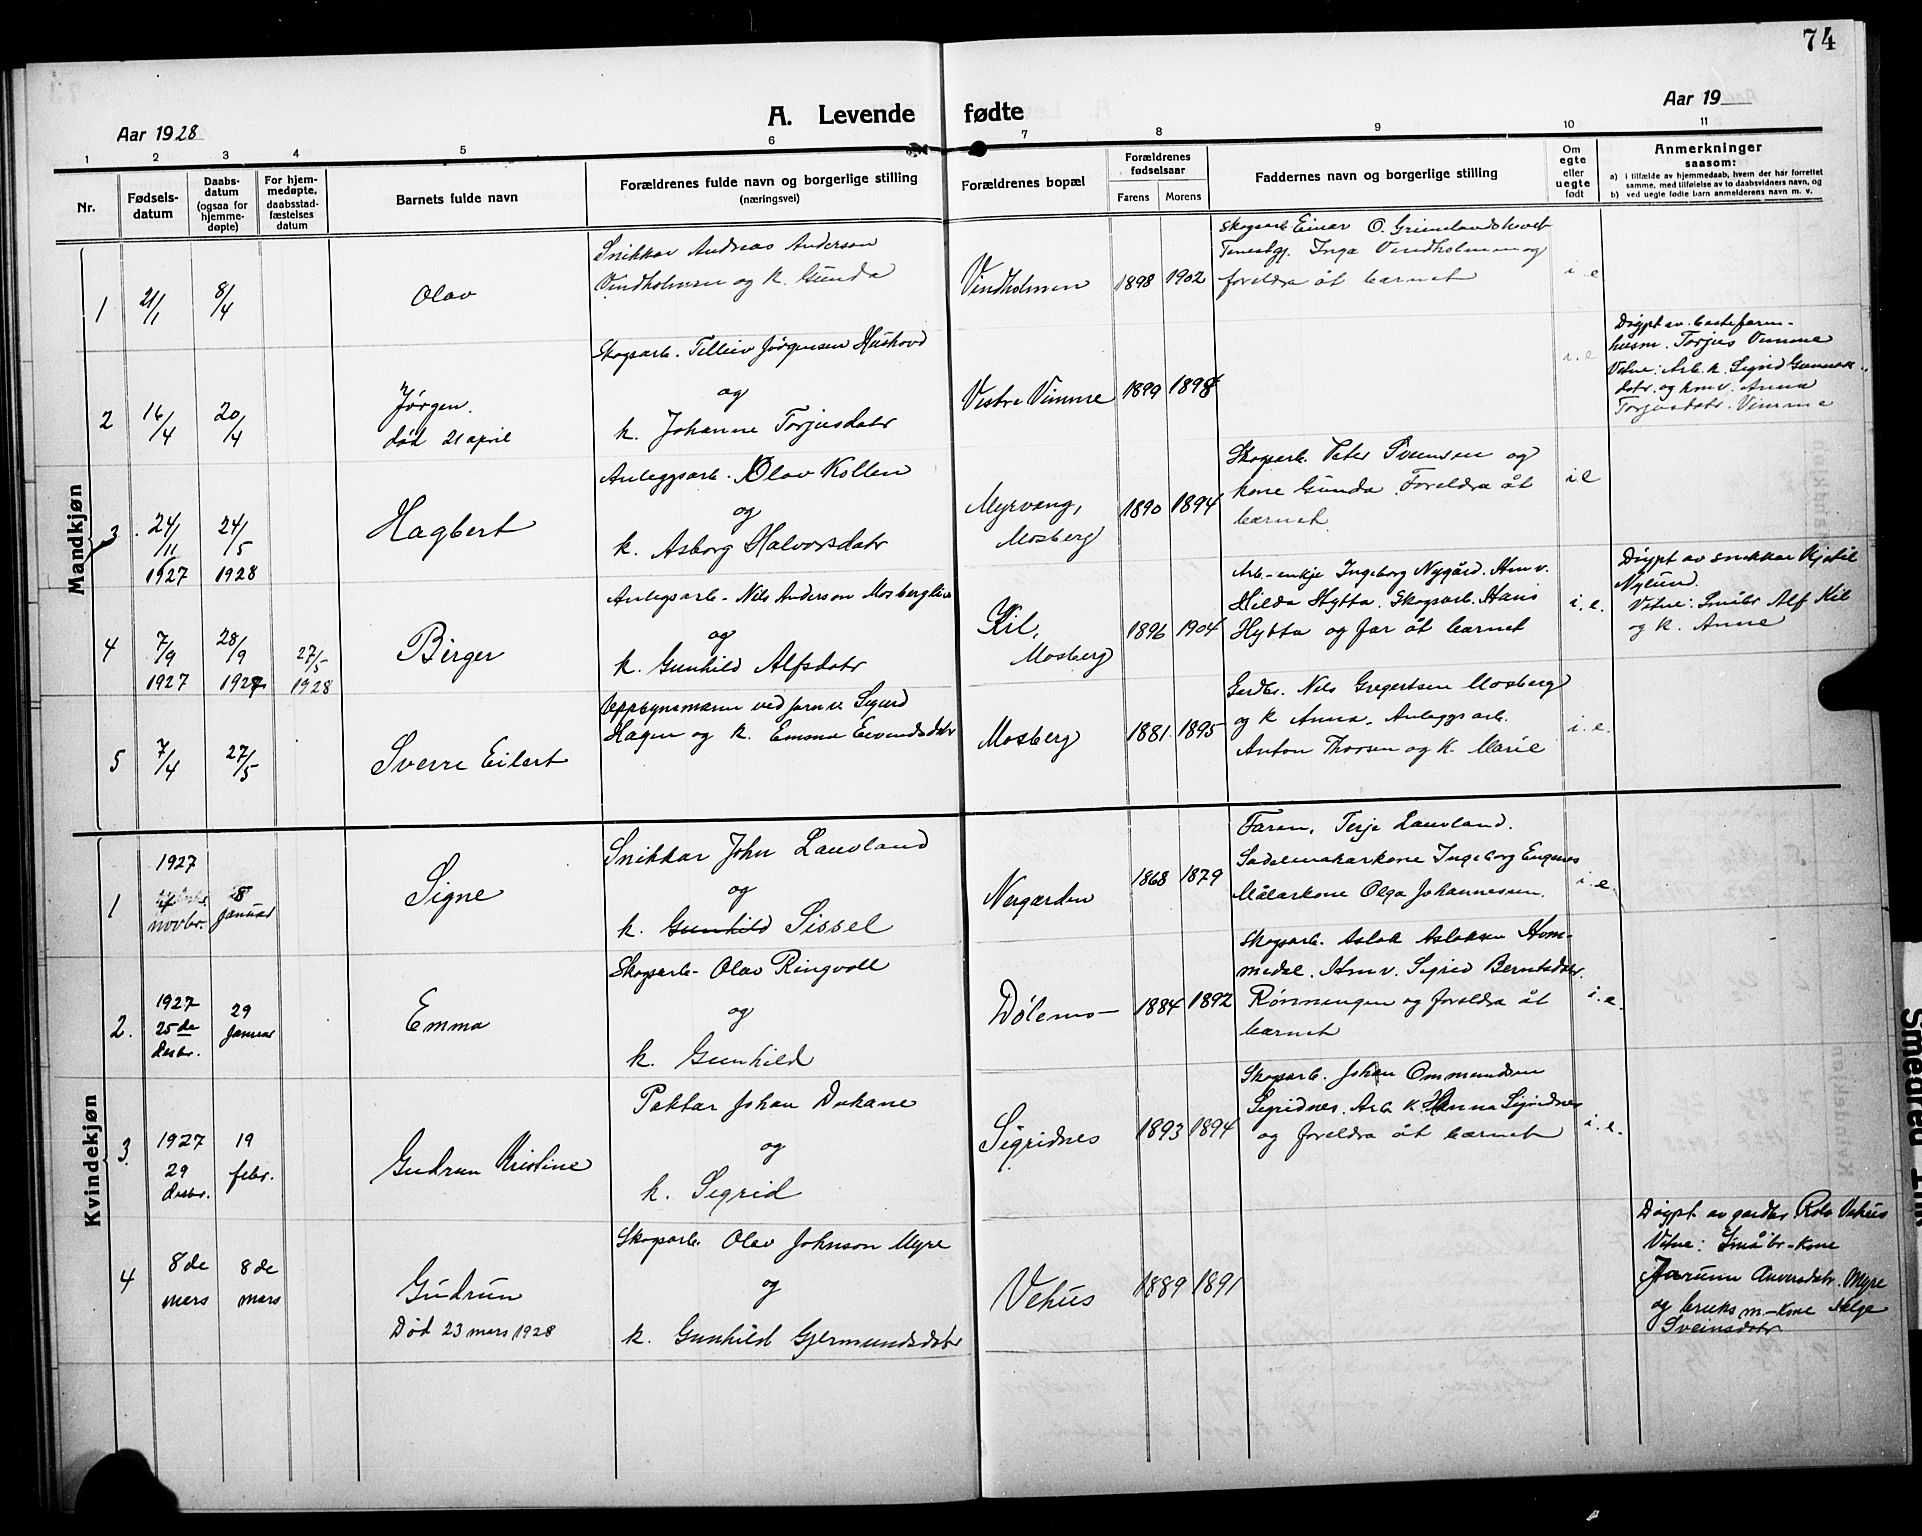 74
A. Levende fødte
Aar 1928
Aar 19
1 2 3 4 5 6 7 8 9 10 11
Nr.
Fødsels-
datum
Daabs-
datum
(ogsaa for
hjemme-
døpte)
For hjem-
medøpte,
daabsstad-
fæstelses
datum
Barnets fulde navn
Forældrenes fulde navn og borgerlige stilling
(næringsvei)
Forældrenes bopæl
Forældrenes
fødselsaar
Farens Morens
Faddernes navn og borgerlige stilling
Om
egte
eller
uegte
født
Anmerkninger
saasom:
a) i tilfælde av hjemmedaab, hvem der har forrettet
samme, med tilføielse av to daabsvidners navn, og
b) ved uegte fødte barn anmelderens navn m. v.
Mandkjøn
1
21/1
8/4
Olav
Snikkar Andreas Anderson
Vindholmen og k. Gunda
Vindholmen
1898 1902
Skogsarb. Einar O. Grimelandshovet
Tenestgj. Inga Vindholmen og
foreldra åt barnet
i. e
2
16/4
20/4
Jørgen.
død 21 april
Skogsarb. Telleiv Jørgensen Hushovd
og
k. Johanne Torjusdatr
Vestre Vimme
1899 1898
i. e
Døypt av bestefaren
husm. Torjus Vimme
Vitne: Arb. k. Sigrid Gunnars-
datr. og hmv. Anna
Torjusdatr. Vimme
3
24/11
1927
24/5
1928
Hagbert
Anleggsarb. Olav Kollen
og
k. Asborg Halvorsdatr
Myrvang,
Mosberg
1890 1894
Skogsarb. Peter Svensen og
kone Gunda. Foreldra åt
barnet
i e
4
7/9
1927
28/9
1927
27/5
1928
Birger
Anlegsarb. Nils Anderson Mosberglien
og
k. Gunhild Alfsdatr
Kil,
Mosberg
1896 1904
Arb-enkje Ingeborg Nygård. Hmv.
Hilda Hytta. Skogsarb. Hans
Hytta og far åt barnet
i. e.
Døypt av snikkar Kjetil
Nylund.
Vitne: Småbr Alf Kil
og k. Anne
5
7/4
27/5
Sverre Eilert
Oppsynsmann ved jarnv. Sigurd
Hagen og k. Emma Eivendsdatr
Mosberg
1881 1895
Gardbr. Nils Gregertsen Mosberg
og k Anna. Anleggsarb.
Anton Thorsen og k. Marie
i. e.
Kvindekjøn
1
1927
novbr.
8
januar
Signe
Snikkar John Lauvland
og
k. Gunhild Sissel
Nergarden
1868 1879
Faren, Terje Lauvland.
Sadelmakarkone Ingeborg Engenes
Målarkone Olga Johannessen.
i. e.
2.
1927
25de
desbr.
29
januar
Emma
Skogsarb. Olav Ringvoll
og
k. Gunhild
Dølemo
1884 1892
Skogsarb. Aslak Aslaksen Hom-
medal. Hmv. Sigrid Berntsdatr.
Rønningen og foreldra åt
barnet
i. e.
3.
1927
29
desbr.
19
febr.
Gudrun Kristine
Paktar Johan Dukane
og
k. Sigrid
Sigridnes
1893 1894
Skogsarb. Johan Ommundsen
Sigridnes. Arb. k. Hanna Sigridnes
og foreldra åt barnet
i. e.
4
8de
mars
8de
mars
Gudrun
Død 23 mars 1928
Skogsarb. Olav Johnson Myre
og
k. Gunhild Gjermundsdatr
Vehus
1889 1891
Døypt av gardbr Rolv Vehus
Vitne: Småbr-kone
Jorunn Anversdatr. Myre
og bruksm-kone Helge
Sveinsdatr.